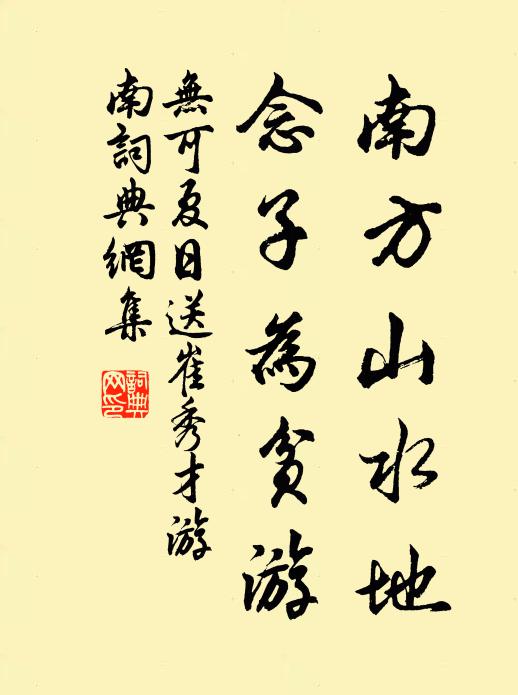 南方山水地
念子為貧游
無可夏日送崔秀才游
南詞典網集
詞典网印